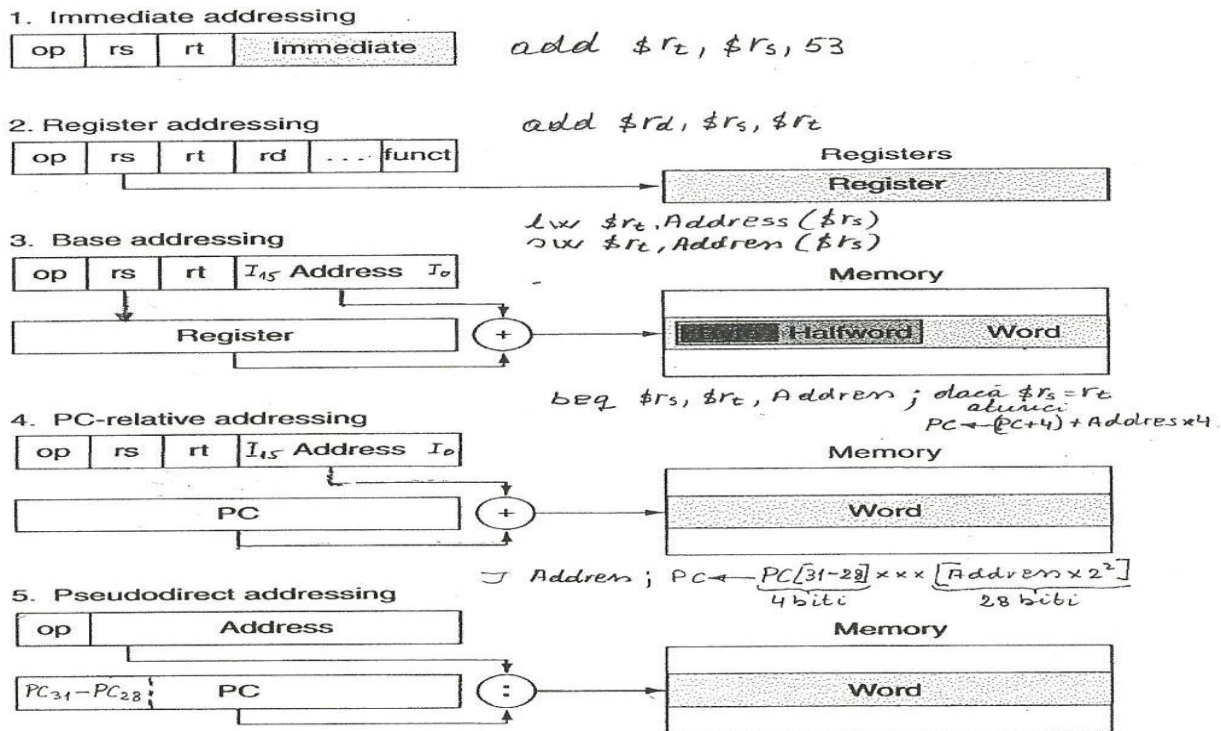 1. Immediate addressing
op rs rt Immediate
add $rt, $rs, 53
2. Register addressing
add $rd, $rs, $rt
op rs rt rd .... funct
Registers
Register
lw $rt, Address ($rs)
sw $rt, Address ($rs)
3. Base addressing
op rs rt I15 Address I0
Memory
Register
+
Halfword Word
beq $rs, $rt, Address ; dacă $rs = rt
atunci
PC ← (PC+4) + Addres×4
4. PC-relative addressing
op rs rt I15 Address I0
Memory
PC
+
Word
J Address ; PC ← PC[31-28] ××× [Address × 2²]
4 biti 28 biti
5. Pseudodirect addressing
op Address
Memory
PC31-PC28 PC
:
Word